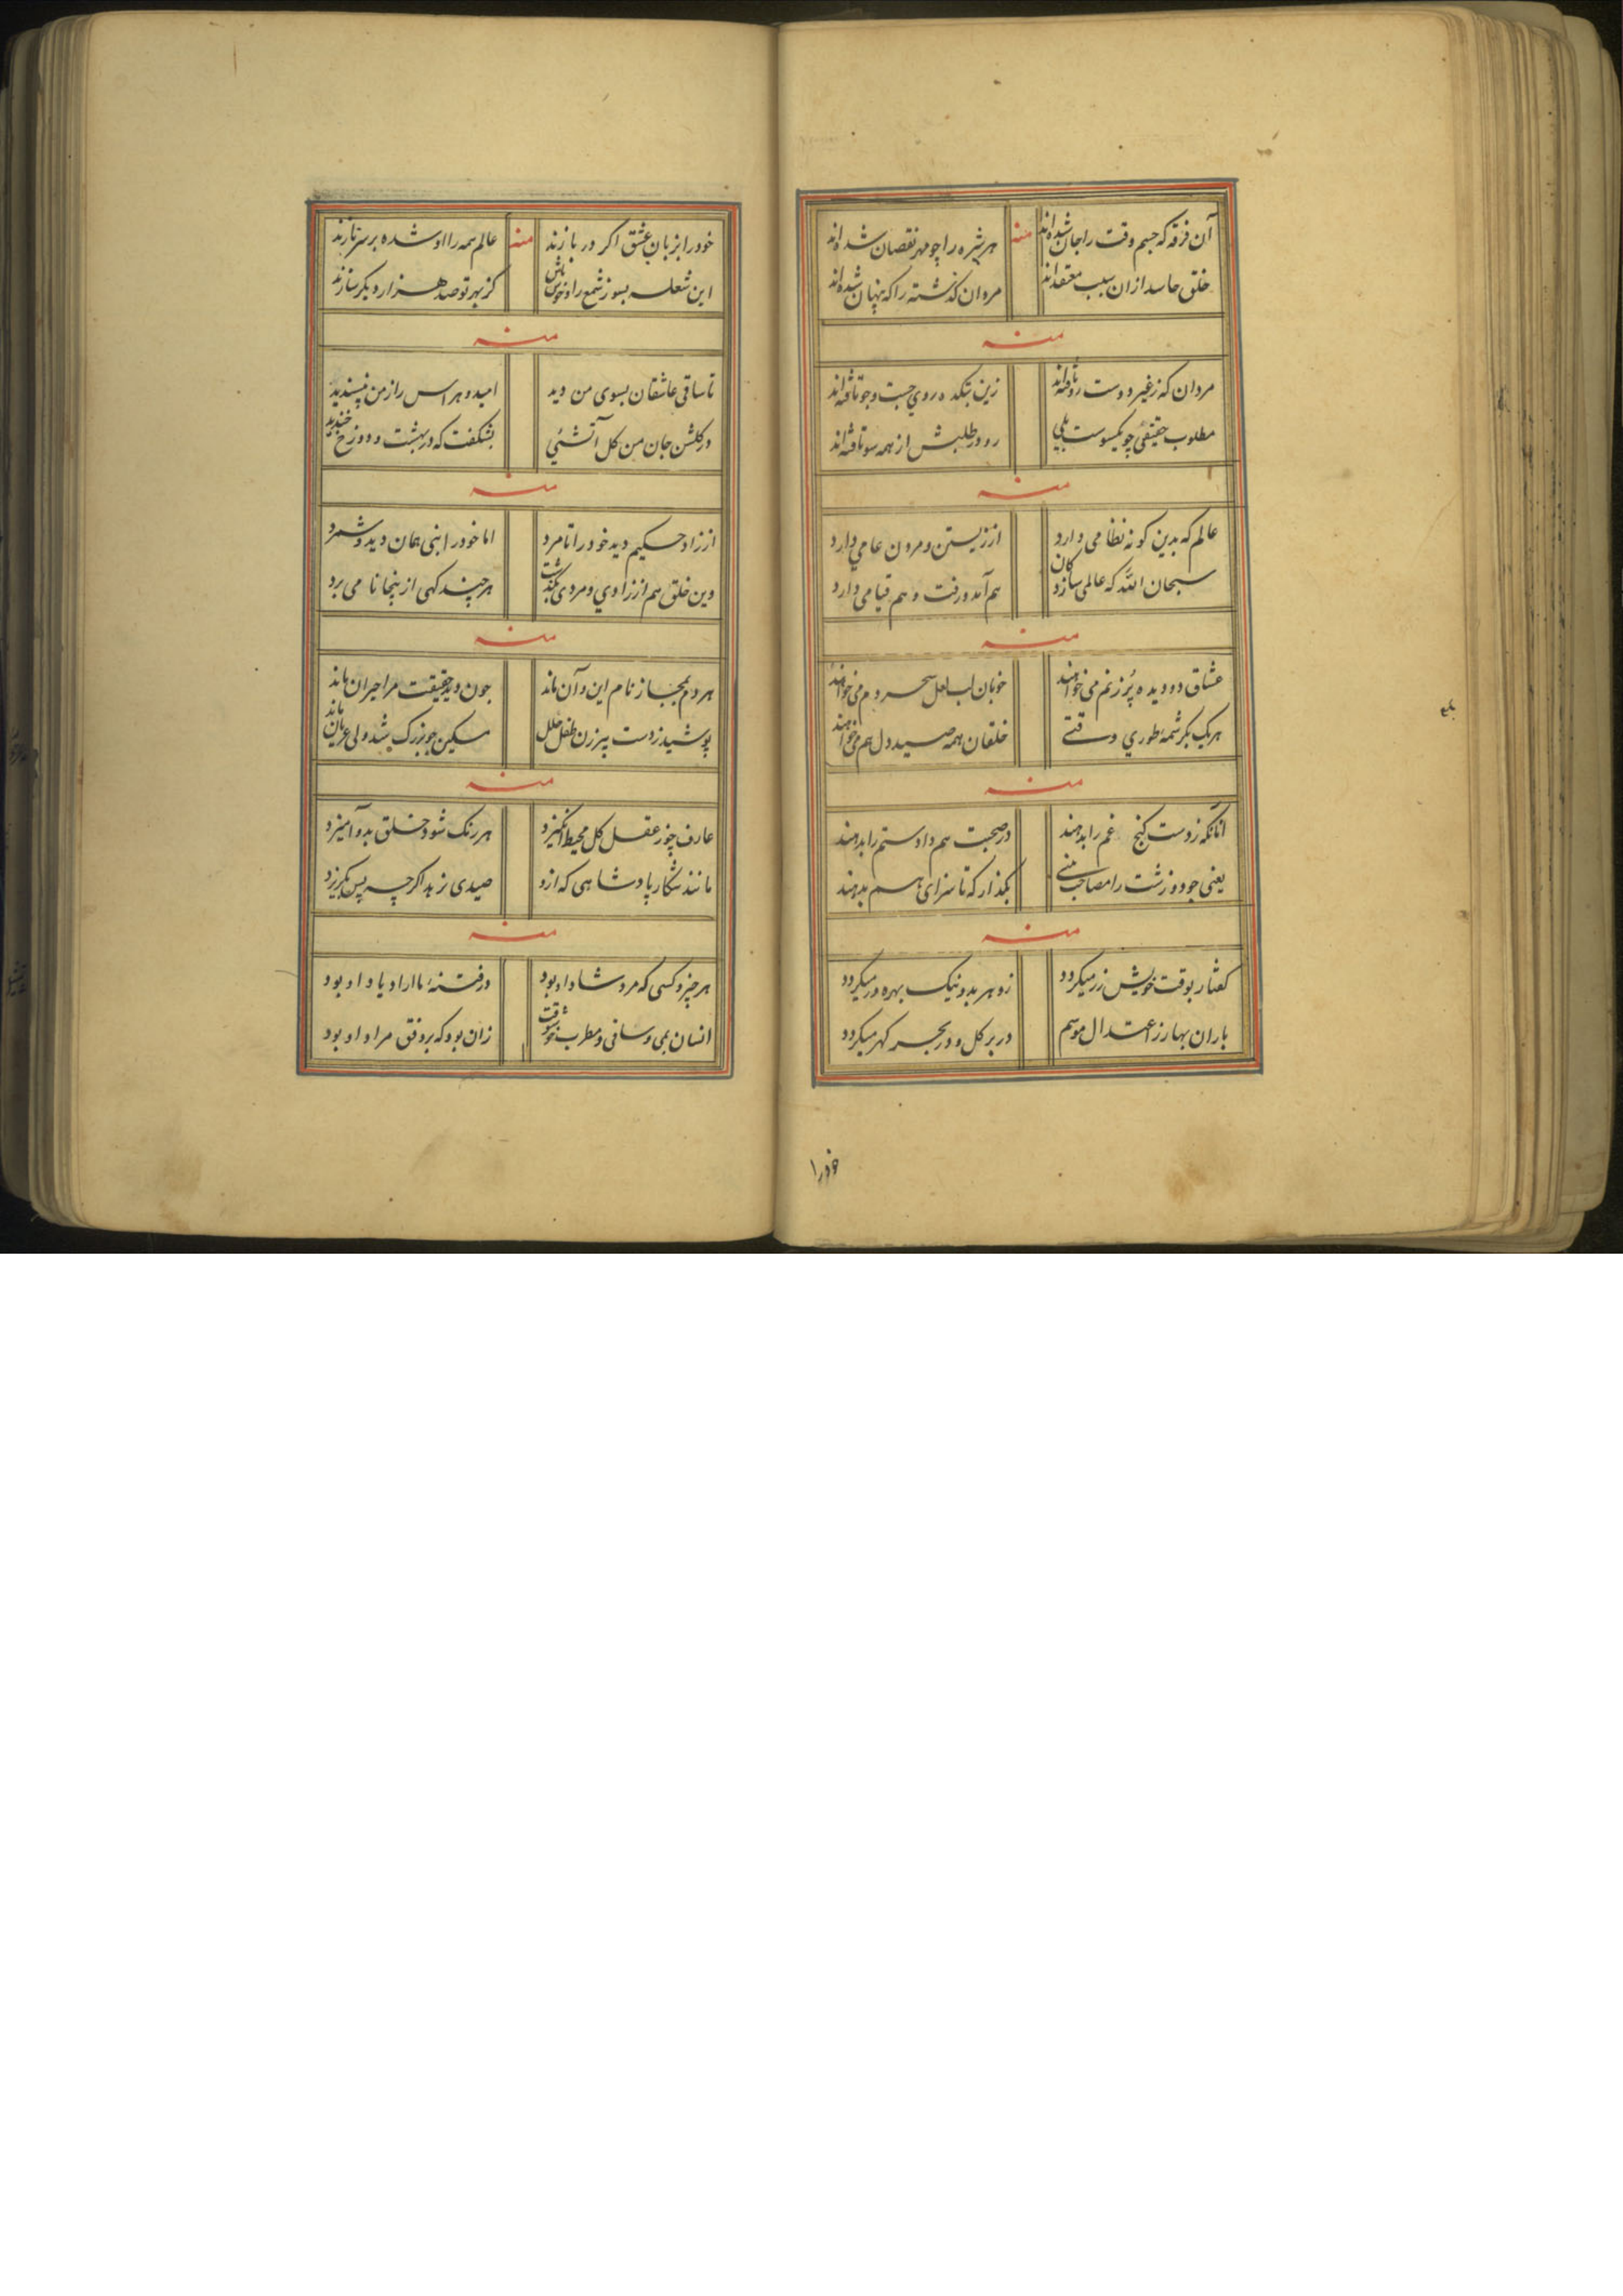 آن فرقه که جسم وقت را جان شده‌اند منه هر شیره را چو مهر نقصان شده‌اند
خلق حاسد ازان سبب معتقداند مردان گذشته را که پنهان شده‌اند
منه
مردان که ز غیر دوست رو تافته‌اند زین بتکده روی جست و جو تافته‌اند
مطلوب حقیقی چو یکسوست بلی رو در طلبش از همه سو تافته‌اند
منه
عالم که بدین گونه نظامی دارد از زیستن و مردن عامی دارد
سبحان الله که عالمی سازد کان هم آمد و رفت و هم قیامی دارد
منه
عشاق دو دیده پر ز نم می‌خواهند خوبان لب لعل سحر دم می‌خواهند
هر یک بکرشمهٔ طوری وقتی خلقان همه صید دل هم می‌خواهند
منه
آنانکه ز دست گنج غم را بدهند در صحبت هم داد ستم را بدهند
یعنی چو دو زشت را مصاحب بینی بگذار که تا سزای هم بدهند
منه
گفتار بوقت خویش زر میگردد زو هر بد و نیک بهره‌ور میگردد
باران بهار ز اعتدال موسم در بر گل و در بحر گهر میگردد
خود را
خود را بزبان عشق اگر در بازند منه عالم همه را او شده بر سر تازند
این شعله بسوز شمع را و خوش باش کز بهر تو صد هزار دیگر سازند
منه
تا ساقی عاشقان بسوی من دید امید و هراس را ز من نپسندید
در گلشن جان من گل آتشئی بشکفت که در بهشت و دوزخ خندید
منه
از زاد حکیم دید خود را تا مرد اما خود را بنی همان دید و شمرد
وین خلق هم از زادی و مردی بگذشت هر چند گهی از پنجا نا می برد
منه
هر دم بمجاز نام این و آن ماند چون دید حقیقت مرا حیران ماند
پوشید ز دست پیر زن طفل حلل مسکین چو بزرگ شد ولی عریان ماند
منه
عارف چو ز عقل کل محیط انگیزد هر رنگ شود خلق بدو آمیزد
مانند شکار پادشاهی که ازو صیدی نرهد اگرچه پس بگریزد
منه
هر چیز و کسی که مرد شاد او بود در فتنهٔ ما را دیا و او بود
انسان بمی و ساقی و مطرب خوشوقت زان بود که بر وفق مراد او بود